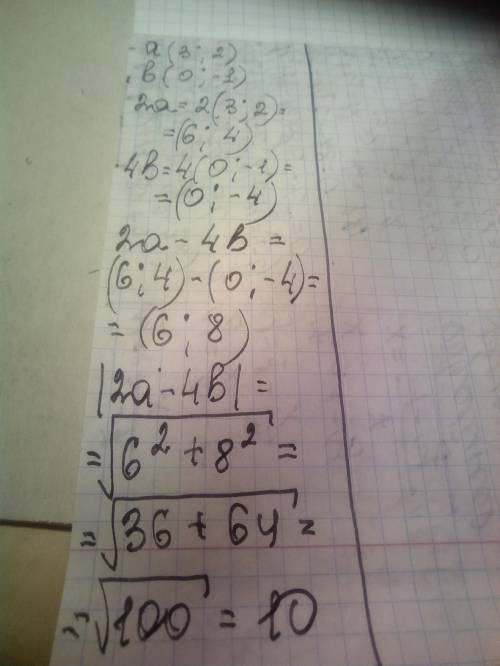 a(3; 2)
b(0; -1)
2a = 2(3; 2) =
= (6; 4)
4b = 4(0; -1) =
= (0; -4)
2a - 4b =
(6; 4) - (0; -4) =
= (6; 8)
|2a - 4b| =
= √6² + 8² =
= √36 + 64 =
= √100 = 10